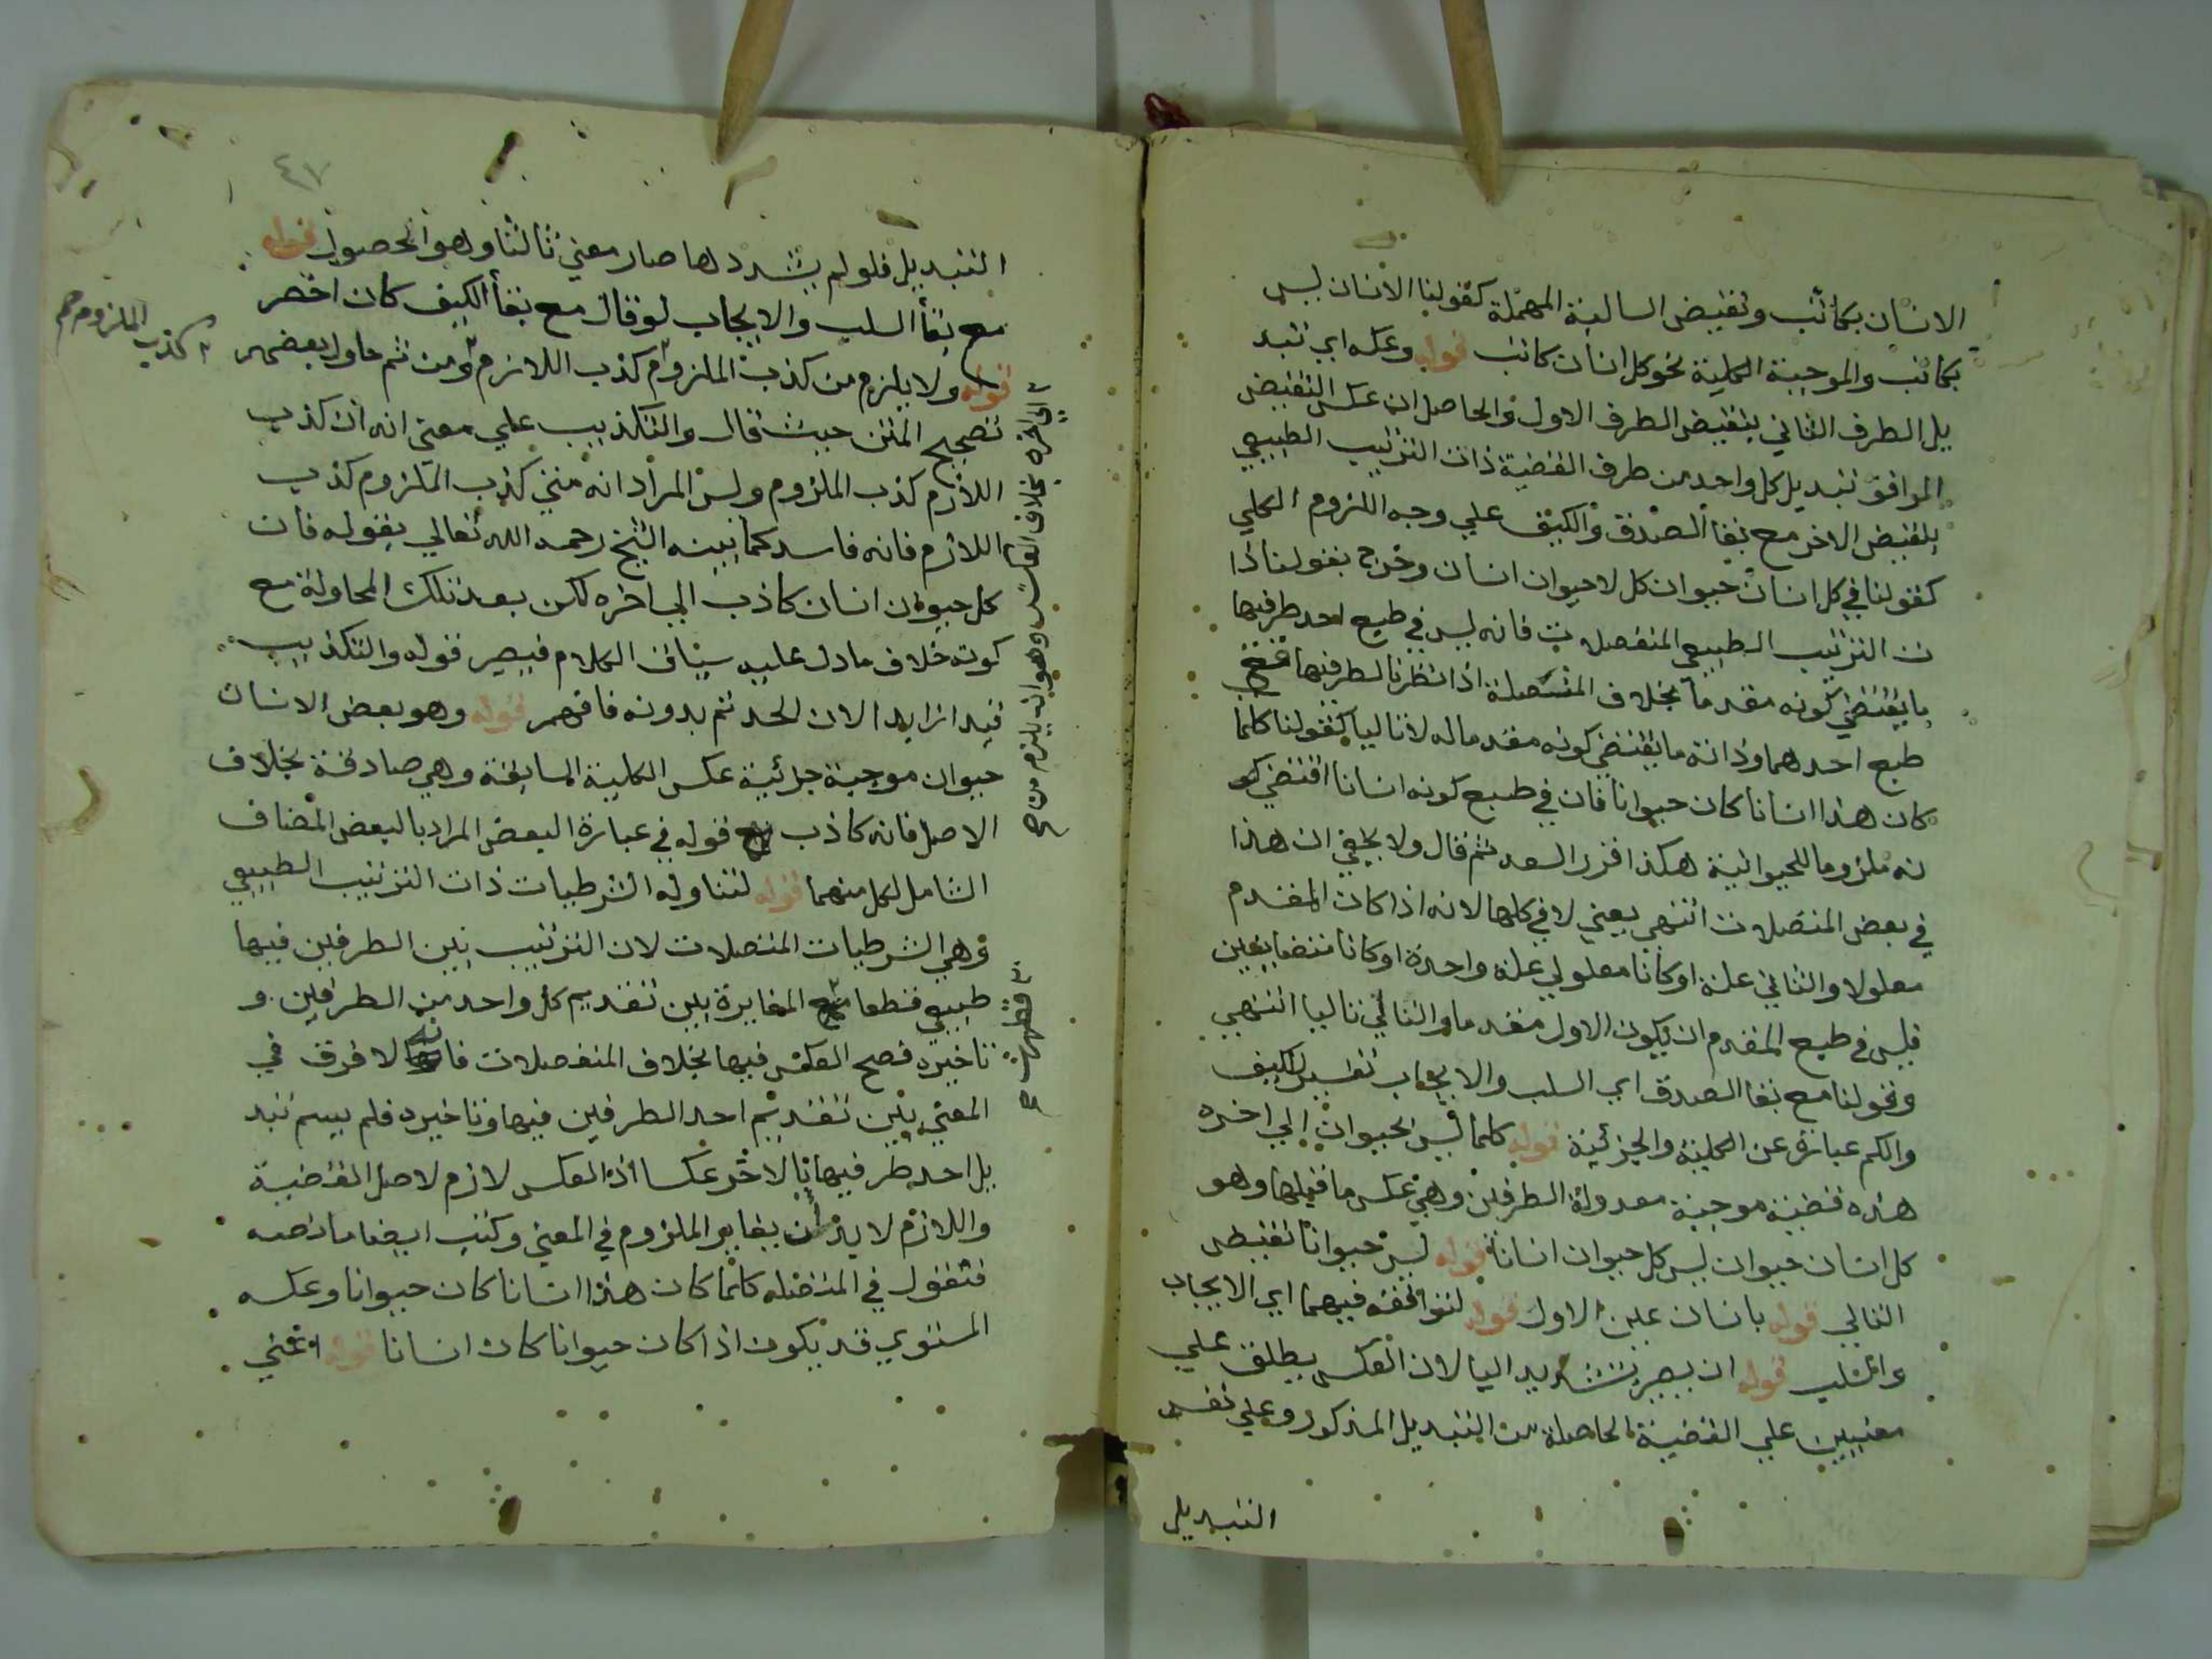 الانسان بكاتب ونقيض السالبة المهملة كقولنا الانسان ليس
بكاتب والموجبة الكلية نحو كل انسان كاتب قوله وعكسه اي تبد
يل الطرف الثاني بنقيض الطرف الاول والحاصل ان عكس النقيض
الموافق تبديل كل واحد من طرف القضية ذات الترتيب الطبيعي
بنقيض الاخر مع بقأ الصدق والكيف علي وجه اللزوم الكلي
كقولنا في كل انسان حيوان كل لا حيوان لا انسان وخرج بقولنا ذا
ت الترتيب الطبيعي المنفصلات فانه ليس في طبع احد طرفيها
ما يقتضي كونه مقدما بخلاف المتصلة اذا نظرنا لطرفيها ففي
طبع احدهما وذاته ما يقتضي كونه مقدما له لا تاليا كقولنا كلما
كان هذا انسانا كان حيوانا فان في طبع كونه انسانا اقتضي كو
نه ملزوما للحيوانية هكذا قرر السعد ثم قال ولا يخفي ان هذا
في بعض المتصلات انتهي يعني لا في كلها لانه اذا كان المقدم
معلولا والثاني علة او كانا معلولي علة واحدة او كانا متضايفين
فليس في طبع المقدم ان يكون الاول مقدما والتالي تاليا انتهي
وقولنا مع بقا الصدق اي السلب والايجاب تفسير للكيف
والكم عبارة عن الكلية والجزئية قوله كلما ليس بحيوان الي اخره
هذه قضية موجبة معدولة الطرفين وهي عكس ما قبلها وهو
كل انسان حيوان ليس كل حيوان انسانا قوله ليس حيوانا نقيض
التالي قوله بانسان عين الاول قوله لتوافقه فيهما اي الايجاب
والسلب قوله ان يصير بتشديد اليا لان العكس يطلق علي
معنيين علي القضية الحاصلة من التبديل المذكور وعلي نفس
التبديل
٤٧
التبديل فلو لم يشدد لها صار معني ثالثا وهو الحصول قوله
مع بقأ السلب والايجاب لو قال مع بقأ الكيف كان اخصر
قوله ولا يلزم من كذب الملزوم كذب اللازم ومن ثم حاول بعضهم
تصحيح المتن حيث قال والتكذيب علي معني انه ان كذب
اللازم كذب الملزوم وليس المراد انه متي كذب الملزوم كذب
اللازم فانه فاسد كما بينه الشيخ رحمه الله تعالي بقوله فان
كل حيوان انسان كاذب الي اخره لكن بعد تلك المحاولة مع
كونه خلاف ما دل عليه سياق الكلام فيصير قوله والتكذيب
قيد ازايدا لان الحد تم بدونه فافهم قوله وهو بعض الانسان
حيوان موجبة جزئية عكس الكلية السابقة وهي صادقة بخلاف
الاصل فانه كاذب قوله في عبارة البعض المراد بالبعض المضاف
الشامل لكل منهما قوله لتناوله الشرطيات ذات الترتيب الطبيعي
وهي الشرطيات المتصلات لان الترتيب بين الطرفين فيها
طبيعي قطعا المغايرة بين تقديم كل واحد من الطرفين و
تاخيره فصح العكس فيها بخلاف المنفصلات فانه لا فرق في
المعني بين تقديم احد الطرفين فيها وتاخيره فلم يسم تبد
يل احد طرفيها بالاخر عكسا اذ العكس لازم لاصل القضية
واللازم لا بد ان يغاير الملزوم في المعني وكتب ايضا ما نصه
فتقول في المتصله كلما كان هذا انسانا كان حيوانا وعكسه
المستوي قد يكون اذا كان حيوانا كان انسانا قوله اوعني
كذب الملزوم صح
الي اخره بخلاف وهو انه يلزم من صح